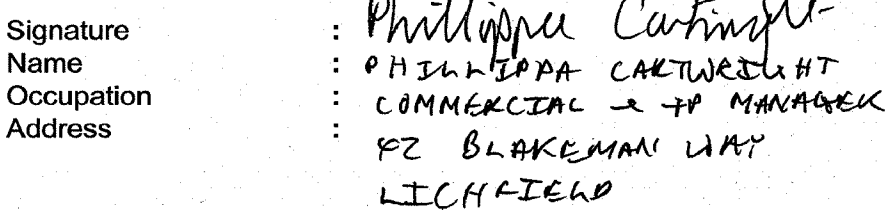 Signature : Phillippa Cartwright
Name : PHILLIPPA CARTWRIGHT
Occupation : COMMERCIAL & IP MANAGER
Address : 42 BLAKEMAN WAY
LICHFIELD